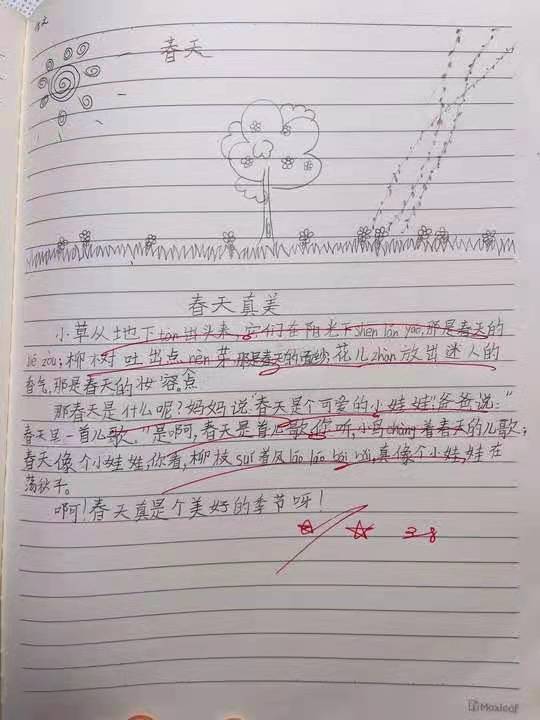 春天
春天真美
小草从地下tàn出头来,它们在阳光下shēn lǎn yāo,那是春天的
柳树吐出点nèn芽,那是春天的 花儿zhàn放出迷人的
香气,那是春天的妆容。
那春天是什么呢?妈妈说:"春天是个可爱的小娃娃!"爸爸说:"
春天是一首儿歌。"是啊,春天是首儿歌,你听,小鸟chàng着春天的儿歌;
春天像个小娃娃,你看,柳枝suí着风 bǎi,真像个小娃娃在
荡秋千。
啊!春天真是个美好的季节呀!
3.8
Moxleaf